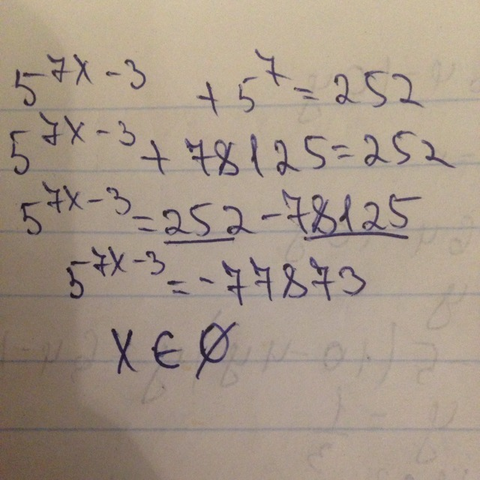 5^7x-3 + 5^7 = 252
5^7x-3 + 78125 = 252
5^7x-3 = 252 - 78125
5^7x-3 = -77873
x ∈ ∅